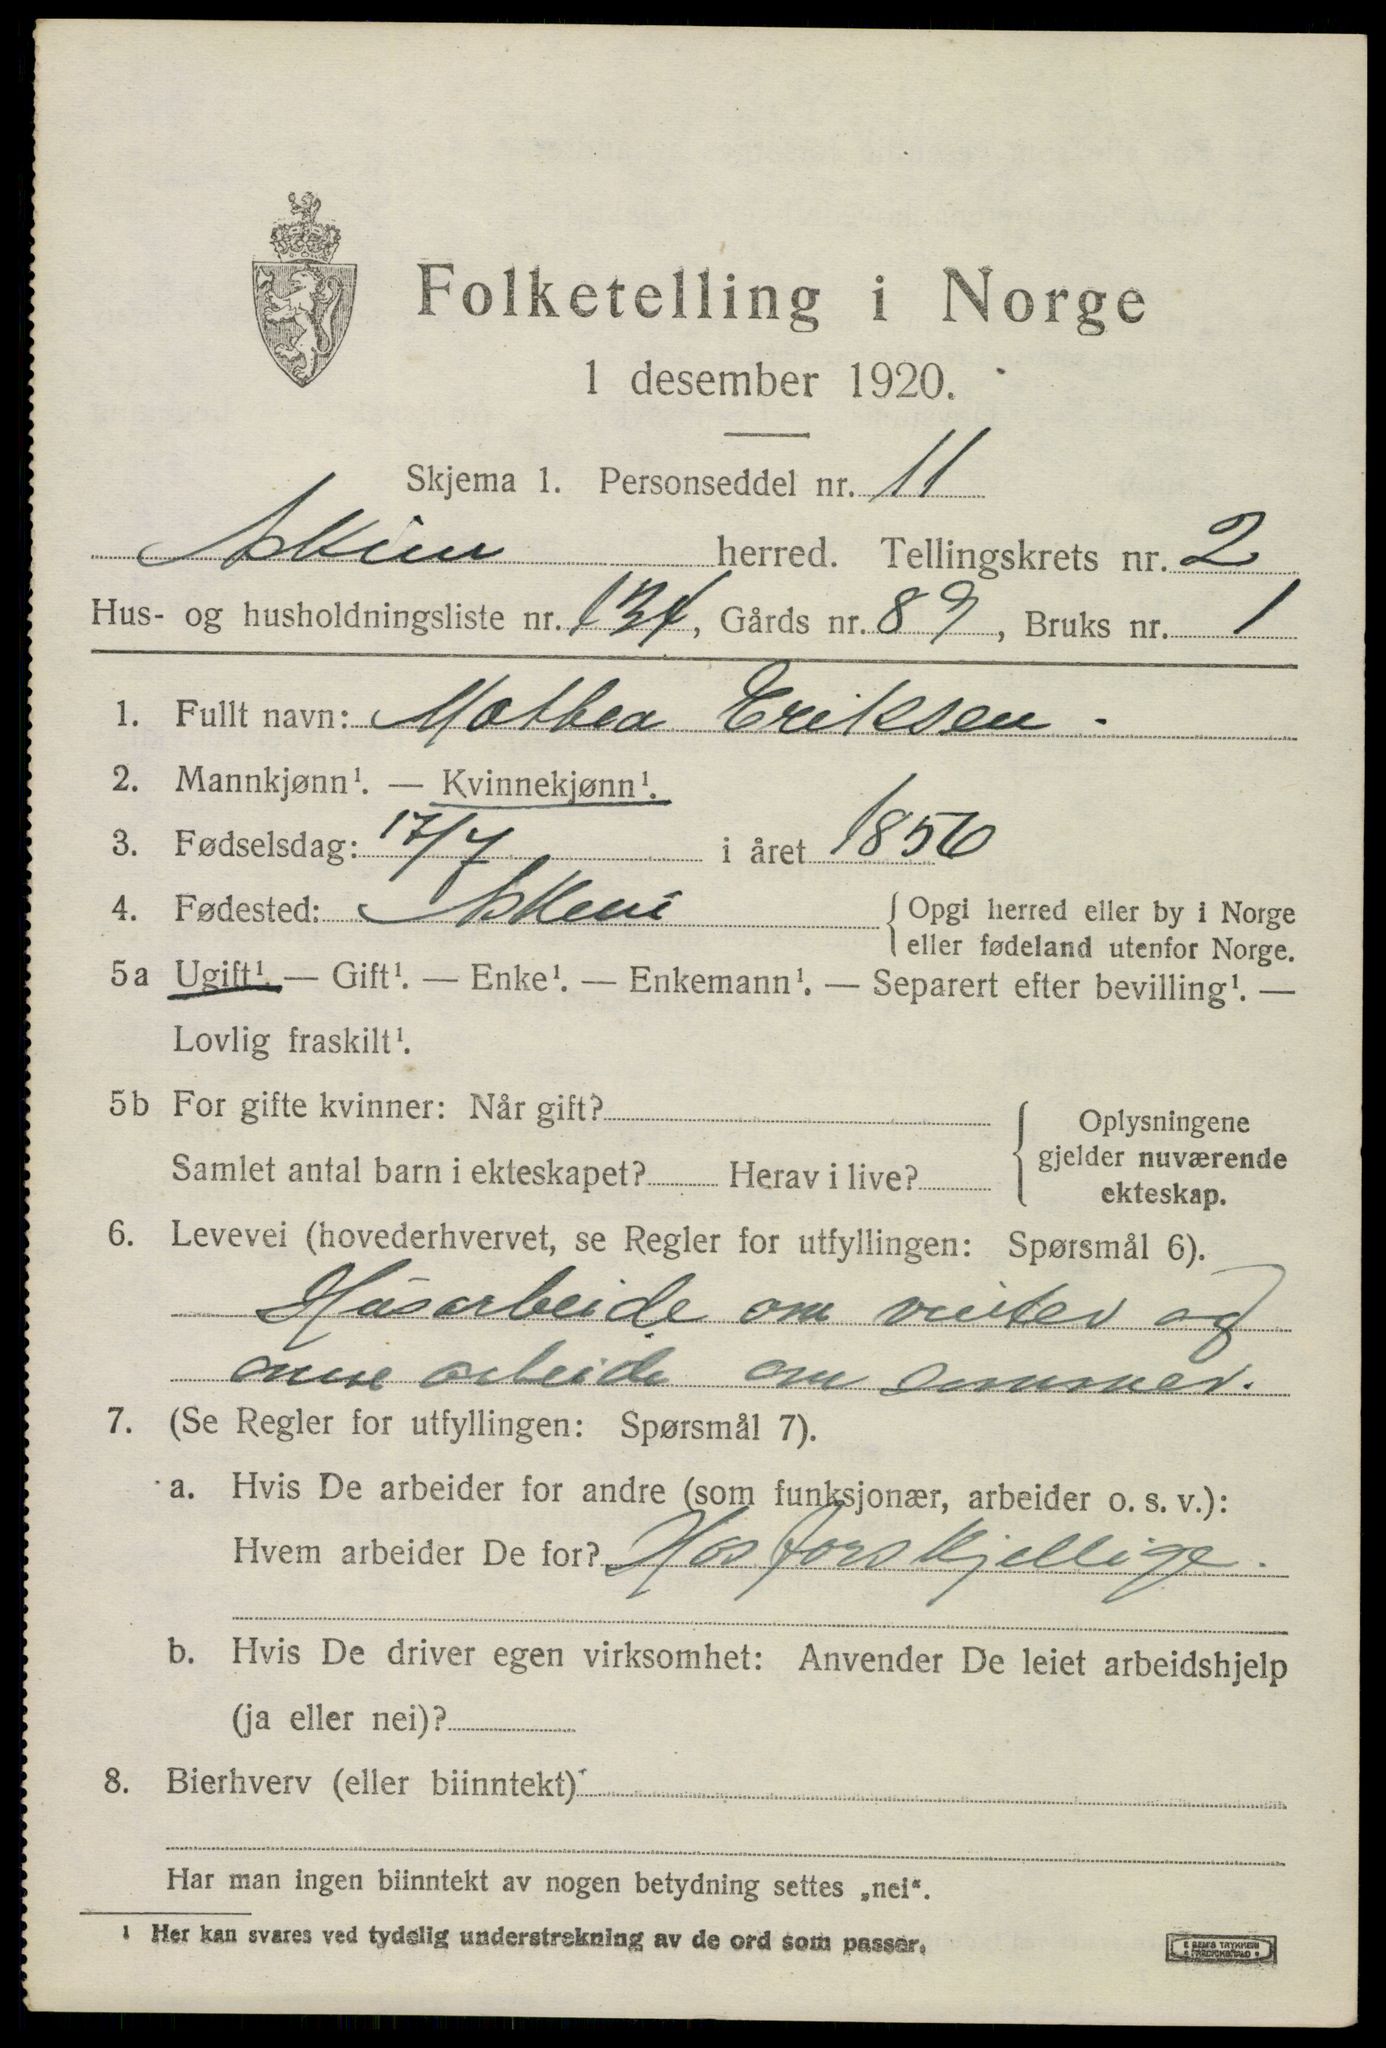 Folketelling i Norge
1 desember 1920.
Skjema 1. Personseddel nr. 11
Askim herred. Tellingskrets nr. 2
Hus- og husholdningsliste nr. 134, Gårds nr. 89, Bruks nr. 1
1. Fullt navn: Mathea Eriksen -
2. Mannkjønn¹. — Kvinnekjønn¹.
3. Fødselsdag: 17/7 i året 1856
4. Fødested: Askim { Opgi herred eller by i Norge
eller fødeland utenfor Norge.
5a Ugift¹. — Gift¹. — Enke¹. — Enkemann¹. — Separert efter bevilling¹. —
Lovlig fraskilt¹.
5b For gifte kvinner: Når gift? { Oplysningene
gjelder nuværende
ekteskap.
Samlet antal barn i ekteskapet? Herav i live?
6. Levevei (hovederhvervet, se Regler for utfyllingen: Spørsmål 6).
Husarbeide om vinter og
onne arbeide om sommer.
7. (Se Regler for utfyllingen: Spørsmål 7).
a. Hvis De arbeider for andre (som funksjonær, arbeider o. s. v.):
Hvem arbeider De for? Hos forskjellige.
b. Hvis De driver egen virksomhet: Anvender De leiet arbeidshjelp
(ja eller nei)?
8. Bierhverv (eller biinntekt)
Har man ingen biinntekt av nogen betydning settes „nei“.
¹ Her kan svares ved tydelig understrekning av de ord som passer.